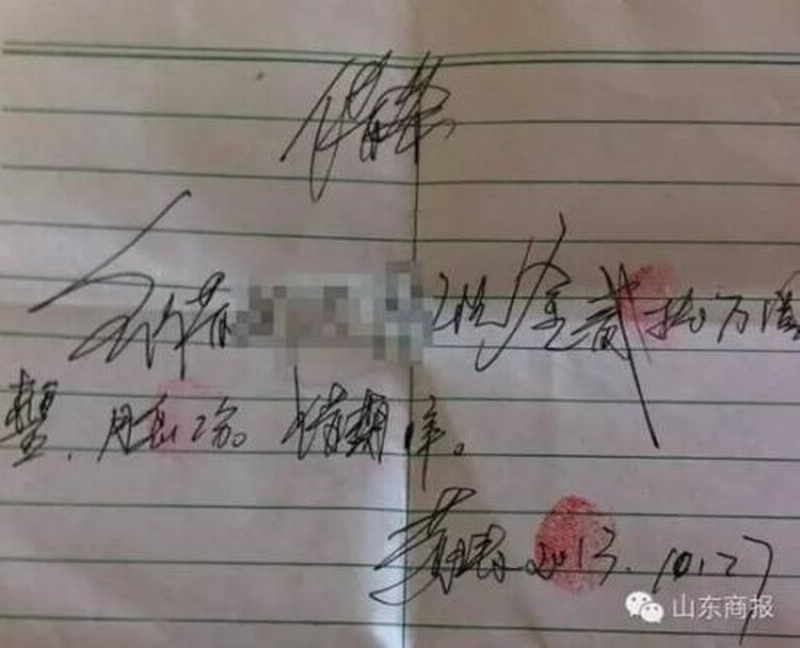 借条
今借 现金贰拾万元
整，月息2分。借期1年。
2013.10.27
山东商报